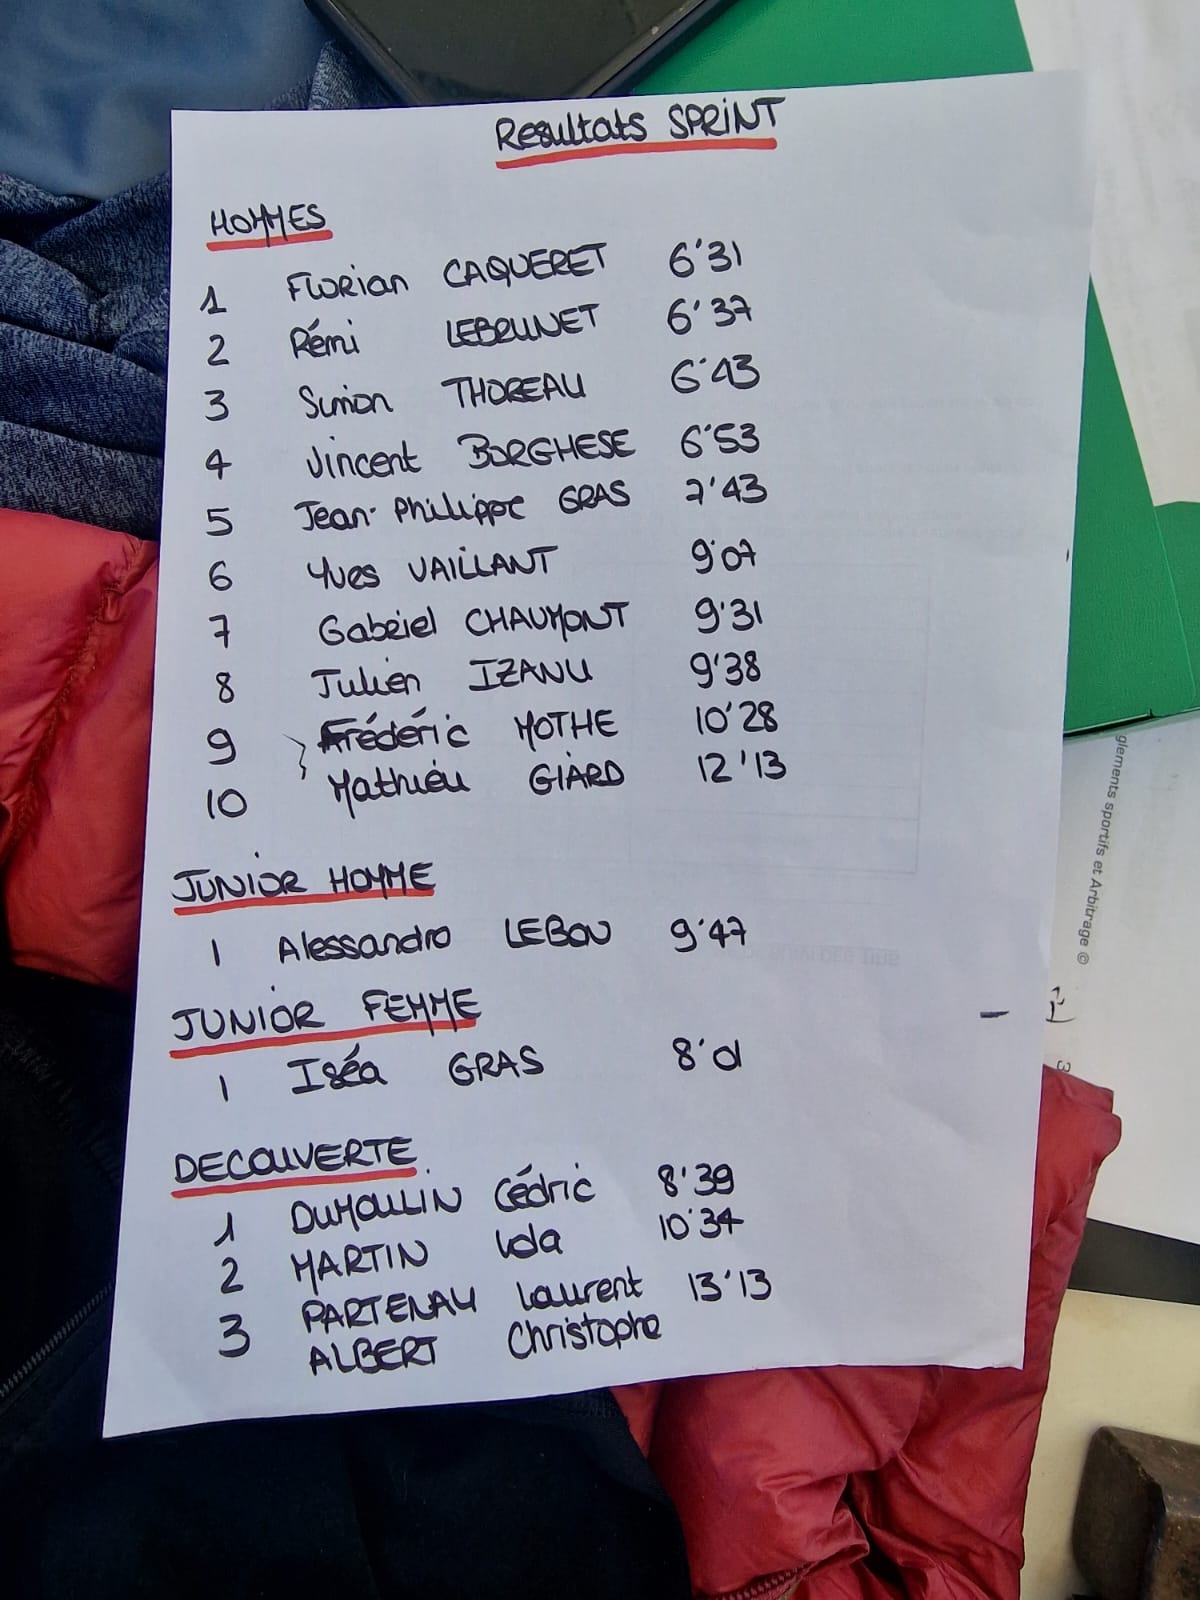 Resultats SPRINT
HOMMES
1 Florian CAQUERET 6'31
2 Rémi LEBRUNET 6'37
3 Simon THOREAU 6'43
4 Vincent BORGHESE 6'53
5 Jean-Philippe GRAS 7'43
6 Yves VAILLANT 9'07
7 Gabriel CHAUMONT 9'31
8 Julien IZANU 9'38
9 Frédéric MOTHE 10'28
10 Mathieu GIARD 12'13
JUNIOR HOMME
1 Alessandro LEBOU 9'47
JUNIOR FEMME
1 Iséa GRAS 8'01
DECOUVERTE
1 DUMOULIN Cédric 8'39
2 MARTIN Lola 10'34
3 PARTENAY Laurent 13'13
ALBERT Christophe
glements sportifs et Arbitrage ©
3